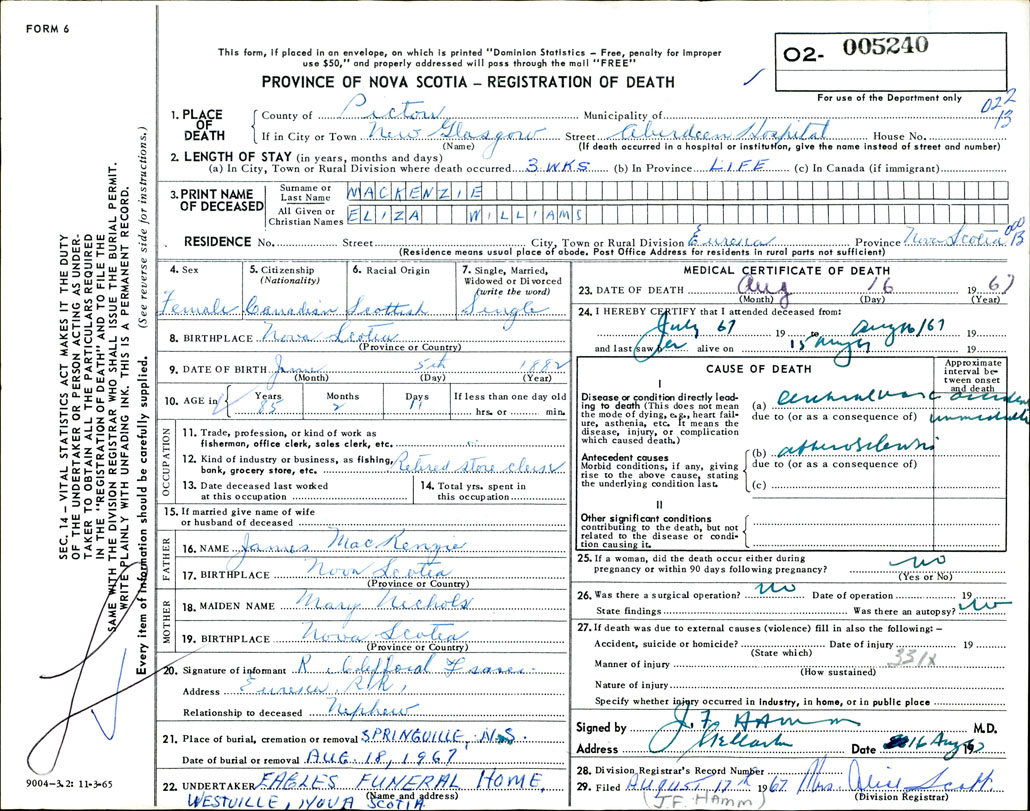 FORM 6
This form, if placed in an envelope, on which is printed "Dominion Statistics – Free, penalty for improper
use $50," and properly addressed will pass through the mail "FREE"
PROVINCE OF NOVA SCOTIA – REGISTRATION OF DEATH
02- 005240
For use of the Department only
022
13
1. PLACE OF DEATH
County of Pictou Municipality of
If in City or Town New Glasgow Street Aberdeen Hospital House No.
(Name) (If death occurred in a hospital or institution, give the name instead of street and number)
2. LENGTH OF STAY (in years, months and days)
(a) In City, Town or Rural Division where death occurred 3 WKS (b) In Province LIFE (c) In Canada (if immigrant)
3. PRINT NAME OF DECEASED
Surname or Last Name MACKENZIE
All Given or Christian Names ELIZA WILLIAMS
RESIDENCE No. Street City, Town or Rural Division Eureka Province Nova Scotia
(Residence means usual place of abode. Post Office Address for residents in rural parts not sufficient)
000
13
4. Sex Female
5. Citizenship (Nationality) Canadian
6. Racial Origin Scottish
7. Single, Married, Widowed or Divorced (write the word) Single
8. BIRTHPLACE Nova Scotia
(Province or Country)
9. DATE OF BIRTH June 5th 1882
(Month) (Day) (Year)
10. AGE in Years 85 Months 2 Days 11 If less than one day old
hrs. or min.
OCCUPATION
11. Trade, profession, or kind of work as
fisherman, office clerk, sales clerk, etc.
12. Kind of industry or business, as fishing,
bank, grocery store, etc. Retired store
13. Date deceased last worked
at this occupation
14. Total yrs. spent in
this occupation
15. If married give name of wife
or husband of deceased
FATHER
16. NAME James MacKenzie
17. BIRTHPLACE Nova Scotia
(Province or Country)
MOTHER
18. MAIDEN NAME Mary Nichols
19. BIRTHPLACE Nova Scotia
(Province or Country)
20. Signature of informant R. Clifford
Address Eureka,
Relationship to deceased Nephew
21. Place of burial, cremation or removal SPRINGVILLE, N.S.
Date of burial or removal AUG. 18, 1967
22. UNDERTAKER EAGLES FUNERAL HOME,
(Name and address)
WESTVILLE, NOVA SCOTIA
MEDICAL CERTIFICATE OF DEATH
23. DATE OF DEATH Aug 16 1967
(Month) (Day) (Year)
24. I HEREBY CERTIFY that I attended deceased from:
July 67 19 to Aug 16/67 19
and last saw her alive on 15 Aug 67 19
CAUSE OF DEATH
Approximate interval between onset and death
I
Disease or condition directly leading to death (This does not mean
the mode of dying, e.g., heart failure, asthenia, etc. It means the
disease, injury, or complication
which caused death.)
(a) cerebral vasc accident
due to (or as a consequence of) immediate
Antecedent causes
Morbid conditions, if any, giving
rise to the above cause, stating
the underlying condition last.
(b)
due to (or as a consequence of)
(c)
II
Other significant conditions
contributing to the death, but not
related to the disease or condition causing it.
25. If a woman, did the death occur either during
pregnancy or within 90 days following pregnancy? no
(Yes or No)
26. Was there a surgical operation? no Date of operation 19
State findings Was there an autopsy? no
27. If death was due to external causes (violence) fill in also the following: –
Accident, suicide or homicide? Date of injury 19
(State which)
331X
Manner of injury
(How sustained)
Nature of injury
Specify whether injury occurred in industry, in home, or in public place
Signed by J. F. HAMM M.D.
Address Stellarton Date 16 Aug 67
28. Division Registrar's Record Number
29. Filed August 17th 1967 Mrs. Alice Scott
(J.F. HAMM) (Division Registrar)
SEC. 14 – VITAL STATISTICS ACT MAKES IT THE DUTY
OF THE UNDERTAKER OR PERSON ACTING AS UNDERTAKER TO OBTAIN ALL THE PARTICULARS REQUIRED
IN THE "REGISTRATION OF DEATH" AND TO FILE THE
SAME WITH THE DIVISION REGISTRAR WHO SHALL ISSUE THE BURIAL PERMIT.
WRITE PLAINLY WITH UNFADING INK. THIS IS A PERMANENT RECORD.
Every item of information should be carefully supplied. (See reverse side for instructions.)
9004-3.2: 11-3-65